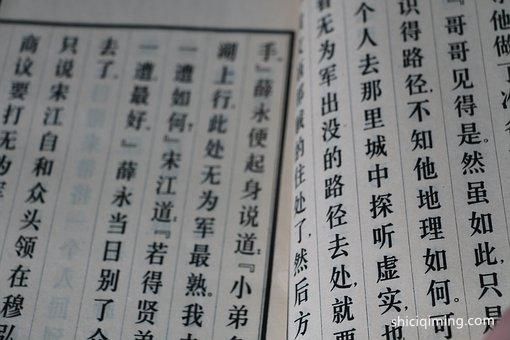 他做了
『哥哥见得是。然虽如此,只是
识得路径,不知他地理如何。可
个人去那里城中探听虚实,也
看无为军出没的路径去处,就要
的住处了,然后方
手。』薛永便起身说道:『小弟
湖上行,此处无为军最熟。我
一遭如何?』宋江道:『若得贤弟
一遭最好。』薛永当日别了
去了。
只说宋江自和众头领在穆弘
商议要打无为军
shiciqiming.com